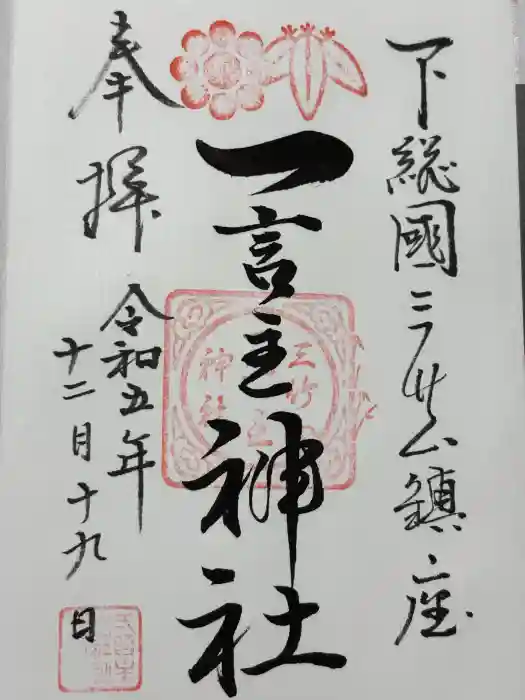 下総國三竹山鎮座
一言主神社
奉拝
令和五年
十二月十九日
三竹
主
神社